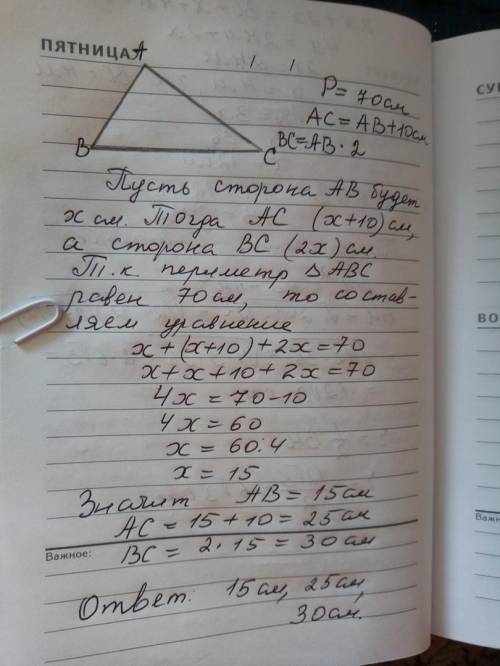 ПЯТНИЦА
A
B
C
P = 70см
AC = AB+10см
BC=AB·2
Пусть сторона AB будет
x см. Тогда AC (x+10)см,
а сторона BC (2x) см.
Т.к. периметр △ABC
равен 70см, то состав-
ляем уравнение
x+(x+10)+2x=70
x+x+10+2x=70
4x=70-10
4x=60
x=60:4
x=15
Значит AB=15см
AC=15+10=25см
Важное: BC=2·15=30см
Ответ: 15см, 25см,
30см.
СУ
ВО
Важн